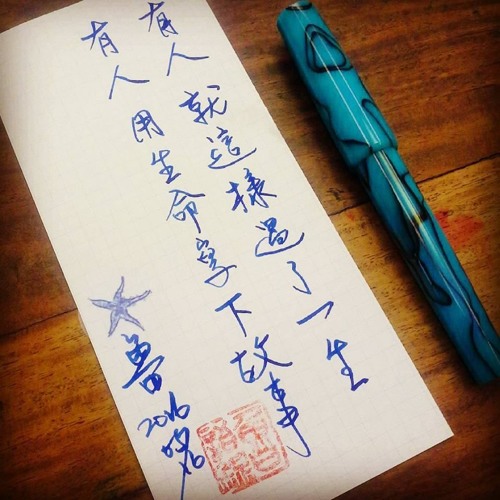 有人就這樣過了一生
有人用生命寫下故事
魯
2016